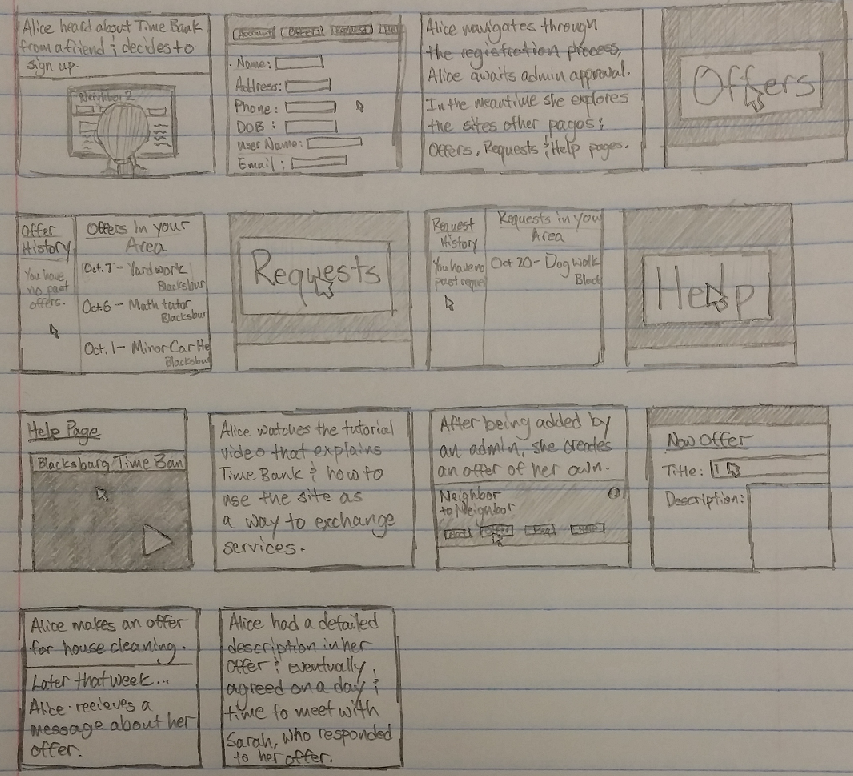 Alice heard about Time Bank
from a friend & decides to
sign up.
Neighbor 2
Offers
Name:
Address:
Phone:
DOB:
user Name:
Email:
Alice navigates through
the registration process,
Alice awaits admin approval.
In the meantime she explores
the sites other pages;
Offers, Requests & Help pages.
Offers
Offer
History
You have
no past
offers.
Offers in your
Area
Oct. 7 - Yardwork
Blacksbur
Oct 6 - Math tutor
Blacksbur
Oct. 1 - Minor Car He
Blacksbur
Requests
Request
History
You have no
past reque
Requests in you
Area
Oct 20 - Dog walk
Black
Help
Help Page
Blacksburg Time Ban
Alice watches the tutorial
video that explains
Time Bank & how to
use the site as
a way to exchange
services.
After being added by
an admin, she creates
an offer of her own.
Neighbor
to Neighbor
New Offer
Title:
Description:
Alice makes an offer
for house cleaning.
Later that week...
Alice recieves a
message about her
offer.
Alice had a detailed
description in her
offer & eventually,
agreed on a day &
time to meet with
Sarah, who responded
to her offer.